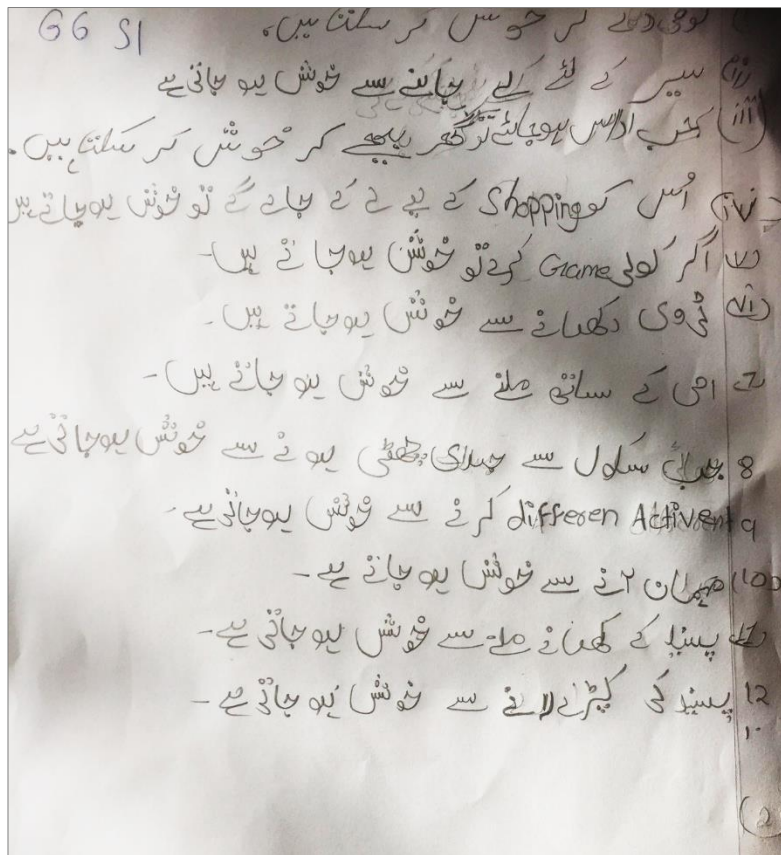 G6 S1
کر خوش کر سکتا ہیں۔
(ii) سیر کے لئے لے جانے سے خوش ہو جاتی ہے
(iii) جب اداس ہو جائے تو گھر بھیج کر خوش کر سکتا ہیں۔
(iv) اُس کو Shopping کے لے کے جاے گے تو خوش ہو جاتے ہیں
(v) اگر کوئی Game کرے تو خوش ہو جاتے ہیں۔
(vi) ٹی وی دکھانے سے خوش ہو جاتے ہیں۔
7 امی کے ساتھ ملنے سے خوش ہو جاتے ہیں۔
8 سکول سے جلدی چھٹی ہونے سے خوش ہو جاتی ہے
9 differen Activent کرنے سے خوش ہو جاتی ہے۔
10 مہمان آنے سے خوش ہو جاتے ہے۔
پسند کے کھانے ملنے سے خوش ہو جاتی ہے۔
12 پسند کی کپڑے لانے سے خوش ہو جاتی ہے۔
(2